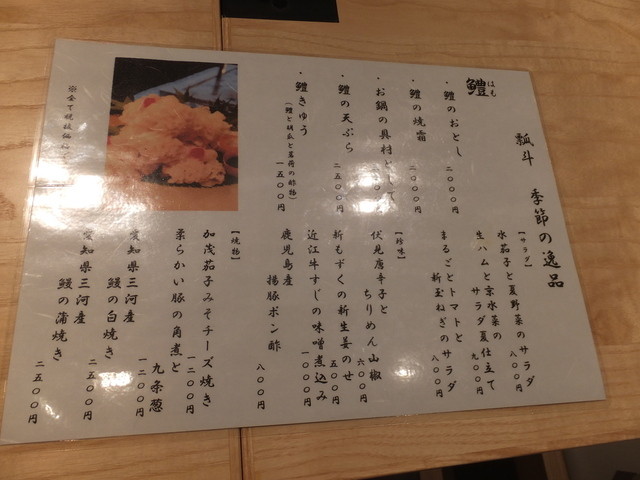 瓢斗 季節の逸品
鱧
はも
・鱧のおとし 二〇〇〇円
・鱧の焼霜 二〇〇〇円
・お鍋の具材として
・鱧の天ぷら 二五〇〇円
・鱧きゅう
(鱧と胡瓜と茗荷の酢物)
一五〇〇円
【サラダ】
水茄子と夏野菜のサラダ
八〇〇円
生ハムと京水菜の
サラダ夏仕立て
九〇〇円
まるごとトマトと
新玉ねぎのサラダ
八〇〇円
【珍味】
伏見唐辛子と
ちりめん山椒
六〇〇円
新もずくの新生姜のせ
五〇〇円
近江牛すじの味噌煮込み
一〇〇〇円
鹿児島産
揚豚ポン酢
八〇〇円
【焼物】
加茂茄子みそチーズ焼き
一二〇〇円
柔らかい豚の角煮と
九条葱
一二〇〇円
愛知県三河産
鰻の白焼き
二五〇〇円
愛知県三河産
鰻の蒲焼き
二五〇〇円
※全て税抜価